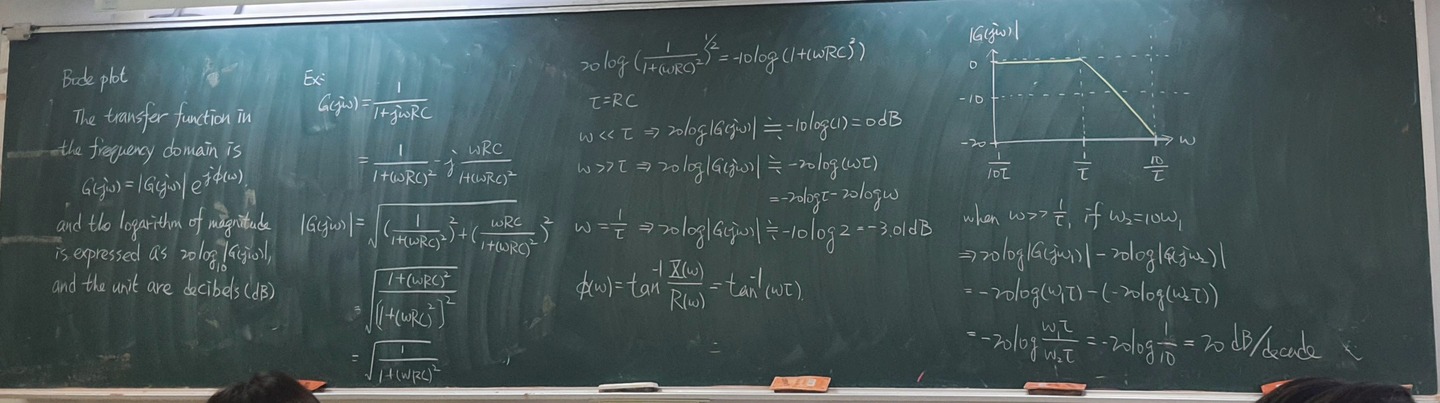 Bode plot
The transfer function in
the frequency domain is
G(jω) = |G(jω)| e^{jϕ(ω)}
and the logarithm of magnitude
is expressed as 20log₁₀|G(jω)|,
and the unit are decibels (dB)
Ex:
G(jω) = 1/(1+jωRC)
= 1/(1+(ωRC)²) - j ωRC/(1+(ωRC)²)
|G(jω)| = √((1/(1+(ωRC)²))² + (ωRC/(1+(ωRC)²))²)
= √((1+(ωRC)²)/[1+(ωRC)²]²)
= √(1/(1+(ωRC)²))
20log(1/(1+(ωRC)²))^{1/2} = -10log(1+(ωRC)²)
τ = RC
ω << τ ⇒ 20log|G(jω)| ≒ -10log(1) = 0dB
ω >> τ ⇒ 20log|G(jω)| ≒ -20log(ωτ)
= -20logτ - 20logω
ω = 1/τ ⇒ 20log|G(jω)| ≒ -10log2 = -3.01dB
ϕ(ω) = tan⁻¹ X(ω)/R(ω) = tan⁻¹(ωτ).
=
|G(jω)|
0
-10
-20
ω
1/10τ
1/τ
10/τ
when ω >> 1/τ, if ω₂=10ω₁
⇒ 20log|G(jω₁)| - 20log|G(jω₂)|
= -20log(ω₁τ) - (-20log(ω₂τ))
= -20log ω₁τ/ω₂τ = -20log 1/10 = 20 dB/decade